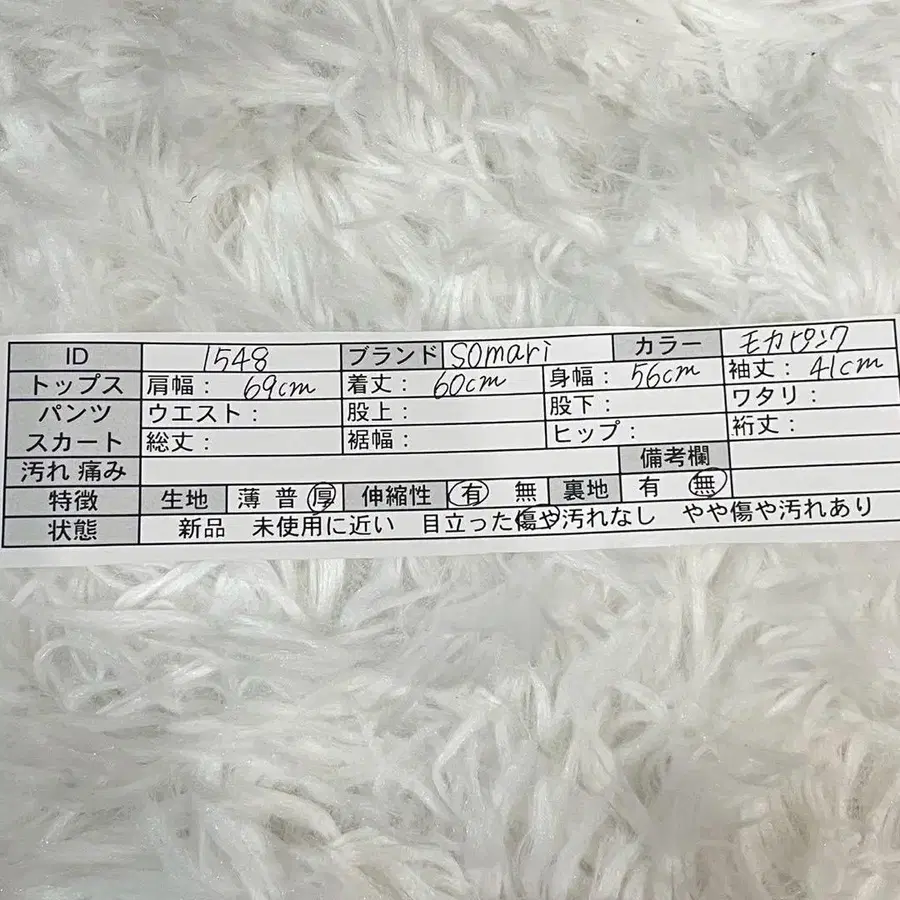 ID 1548 ブランド somari カラー モカピンク
トップス 肩幅： 69cm 着丈： 60cm 身幅： 56cm 袖丈： 41cm
パンツ ウエスト： 股上： 股下： ワタリ：
スカート 総丈： 裾幅： ヒップ： 裄丈：
汚れ 痛み 備考欄
特徴 生地 薄 普 厚 伸縮性 有 無 裏地 有 無
状態 新品 未使用に近い 目立った傷や汚れなし やや傷や汚れあり